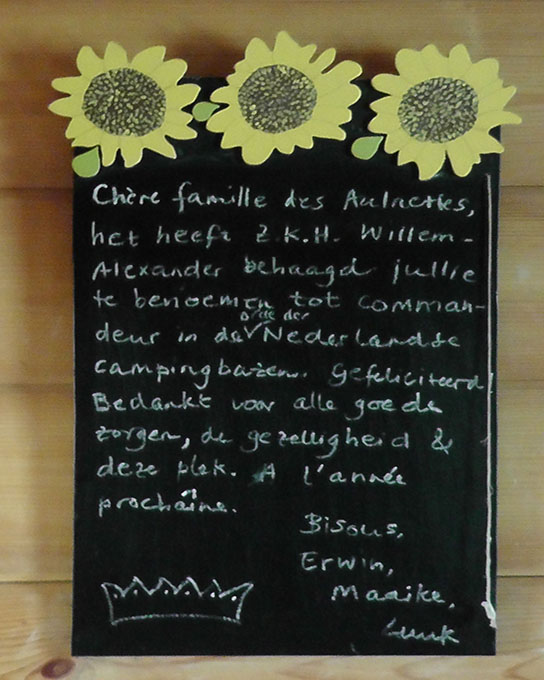 Chère famille des Aulnettes,
het heeft Z.K.H. Willem-
Alexander behaagd jullie
te benoemen tot comman-
deur in de orde der Nederlandse
campingbazen. Gefeliciteerd!
Bedankt voor alle goede
zorgen, de gezelligheid &
deze plek. A l'année
prochaîne.
Bisous,
Erwin,
Maaike,
Luuk